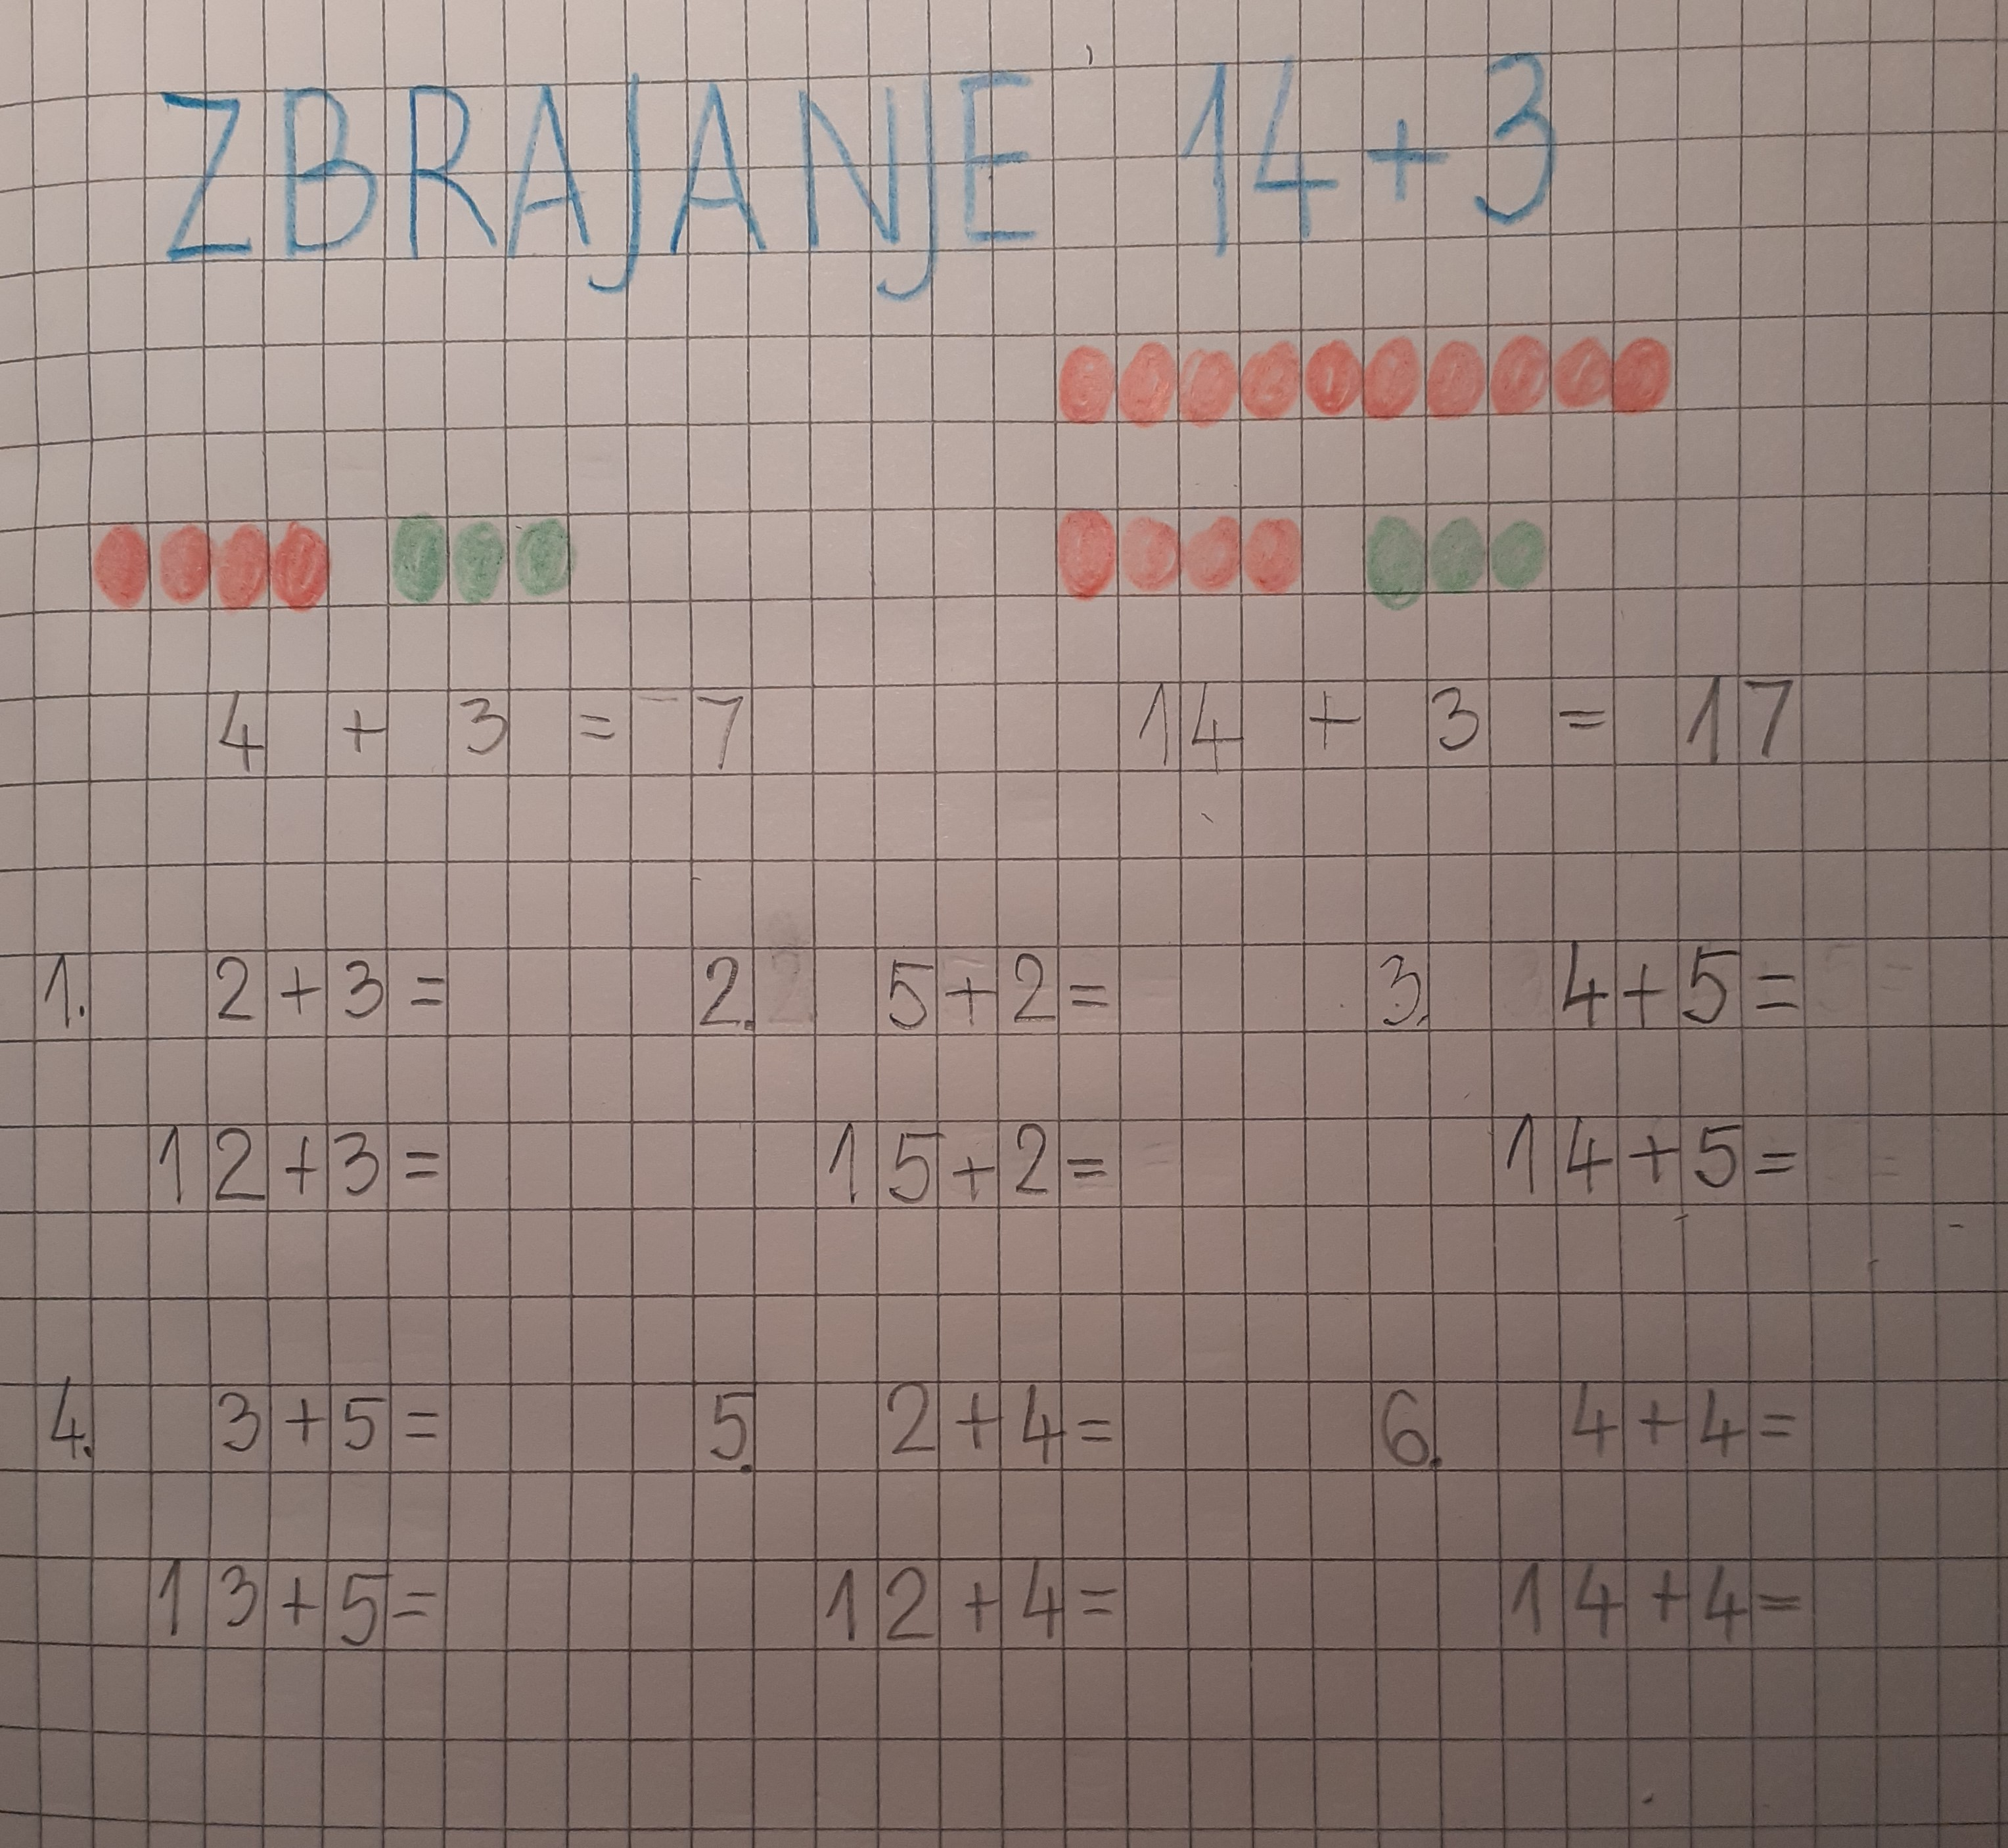 ZBRAJANJE 14+3
4 + 3 = 7 14 + 3 = 17
1. 2+3= 2. 5+2= 3. 4+5=
12+3= 15+2= 14+5=
4. 3+5= 5. 2+4= 6. 4+4=
13+5= 12+4= 14+4=